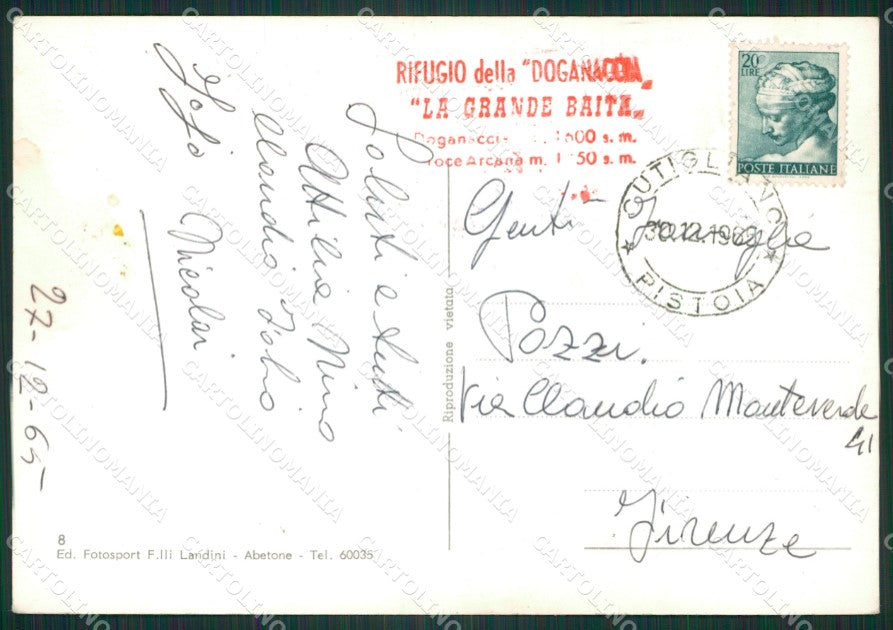 RIFUGIO della "DOGANACCIA"
"LA GRANDE BAITA"
Doganaccia 1600 s. m.
Croce Arcana m. 1 50 s. m.
20
LIRE
POSTE ITALIANE
CUTIGLIANO
30.12.1962
PISTOIA
Saluti e Auti
Attilia Nino
Claudio Fabio
Nicolai
27-12-65
Gent. Famiglia
Pozzi.
Via Claudio Monteverde
41
Firenze
Riproduzione vietata
8
Ed. Fotosport F.lli Landini - Abetone - Tel. 60035
CARTOLINOMANIA